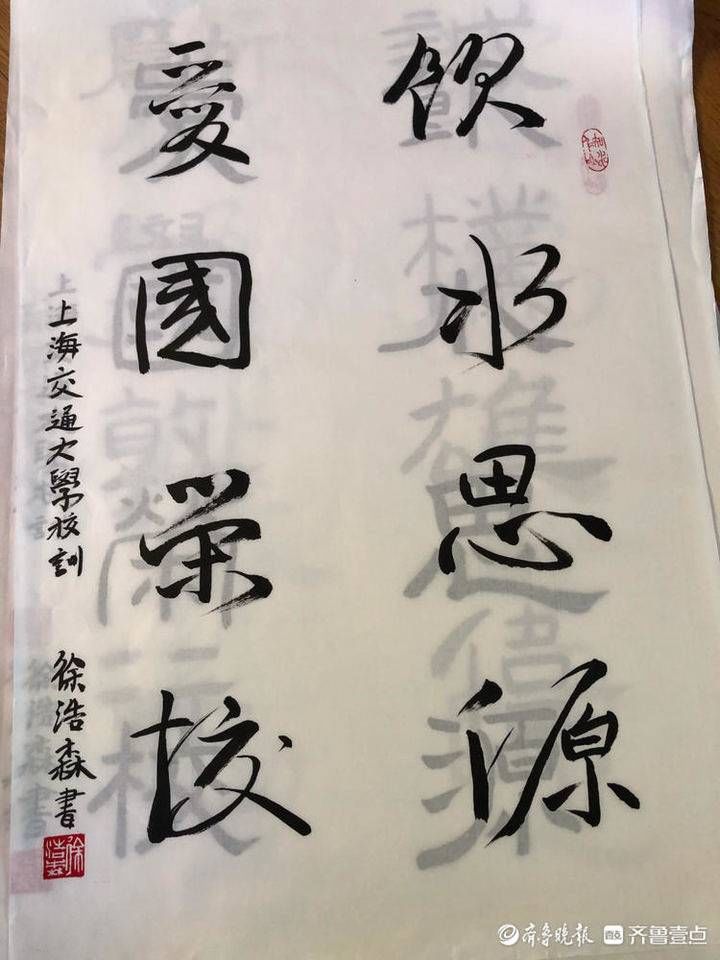 飲水思源
愛國荣校
上海交通大學校訓
徐浩森書
齐鲁晚报 齐鲁壹点